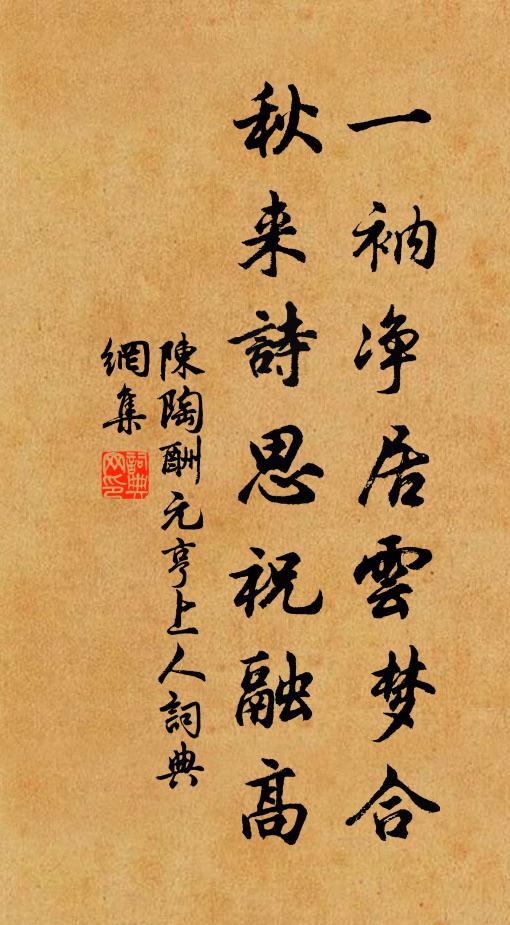 一衲净居雲梦合
秋来詩思祝融高
陳陶酬元亨上人詞典
網集
詞典
网印